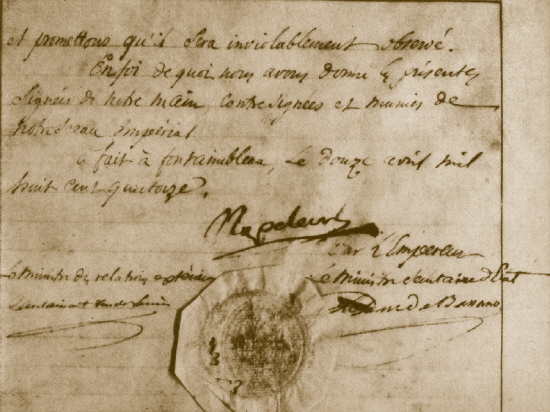 et promettons qu'il sera inviolablement observé.
En foi de quoi nous avons donné les présentes
signées de notre main contresignées et munies de
notre sceau Impérial
fait à fontainebleau, le douze avril mil
huit cent quatorze.
Napoleon
Par l'Empereur
Le Ministre des relations extérieures
Le Ministre Secrétaire d'Etat
Le Duc de Bassano